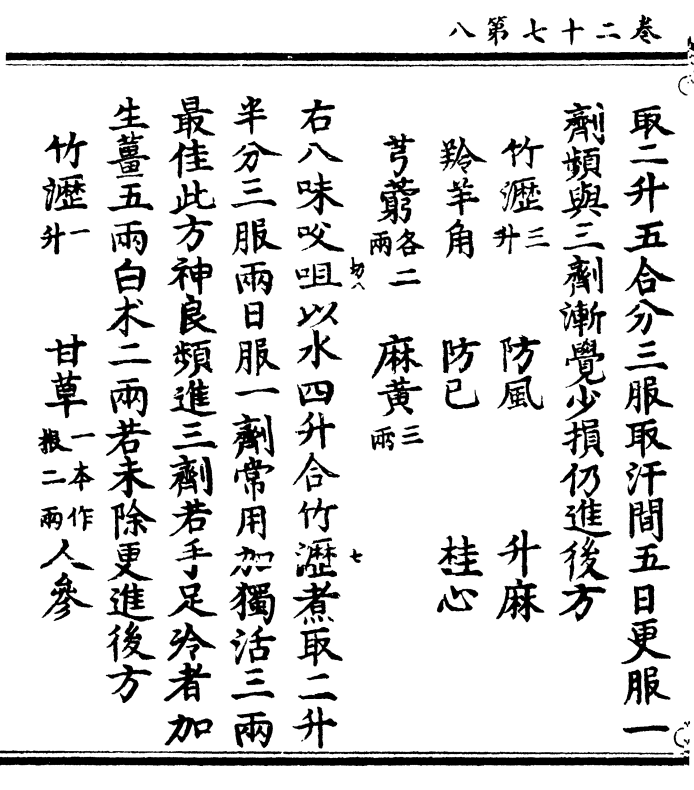 卷二十七第八
取二升五合分三服取汗間五日更服一
劑頻與三劑漸覺少損仍進後方
竹瀝三升 防風 升麻
羚羊角 防已 桂心
芎藭各二兩 麻黃三兩
右八味㕮咀切八以水四升合竹瀝七煮取二升
半分三服兩日服一劑常用加獨活三兩
最佳此方神良頻進三劑若手足冷者加
生薑五兩白术二兩若未除更進後方
竹瀝一升 甘草一本作根二兩 人參